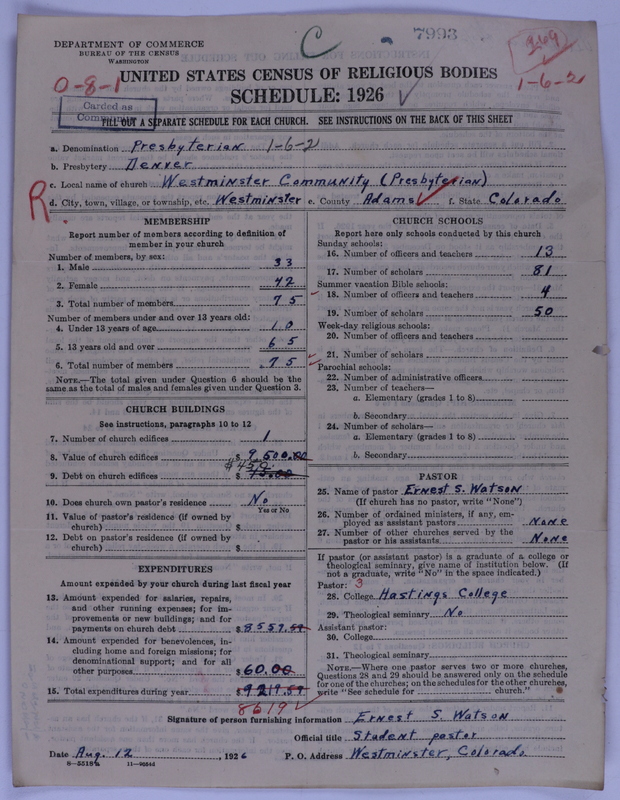 C
7993
DEPARTMENT OF COMMERCE
BUREAU OF THE CENSUS
WASHINGTON
0-8-1
1-6-2
UNITED STATES CENSUS OF RELIGIOUS BODIES
SCHEDULE: 1926
Carded as
FILL OUT A SEPARATE SCHEDULE FOR EACH CHURCH. SEE INSTRUCTIONS ON THE BACK OF THIS SHEET
a. Denomination Presbyterian 1-6-2
b. Presbytery Denver
c. Local name of church Westminster Community (Presbyterian)
R.
d. City, town, village, or township, etc. Westminster e. County Adams f. State Colorado
MEMBERSHIP
Report number of members according to definition of
member in your church
Number of members, by sex:
1. Male 33
2. Female 42
3. Total number of members 75
Number of members under and over 13 years old:
4. Under 13 years of age 10
5. 13 years old and over 65
6. Total number of members 75
NOTE.—The total given under Question 6 should be the
same as the total of males and females given under Question 3.
CHURCH BUILDINGS
See instructions, paragraphs 10 to 12
7. Number of church edifices 1
8. Value of church edifices $ 9,500.00
$450.
9. Debt on church edifices $
10. Does church own pastor's residence No
Yes or No
11. Value of pastor's residence (if owned by
church) $
12. Debt on pastor's residence (if owned by
church) $
EXPENDITURES
Amount expended by your church during last fiscal year
13. Amount expended for salaries, repairs,
and other running expenses; for im-
provements or new buildings; and for
payments on church debt $ 8559.59
14. Amount expended for benevolences, in-
cluding home and foreign missions; for
denominational support; and for all
other purposes $ 60.00
15. Total expenditures during year $ 9219.59
8619
CHURCH SCHOOLS
Report here only schools conducted by this church
Sunday schools:
16. Number of officers and teachers 13
17. Number of scholars 81
Summer vacation Bible schools:
18. Number of officers and teachers 4
19. Number of scholars 50
Week-day religious schools:
20. Number of officers and teachers
21. Number of scholars
Parochial schools:
22. Number of administrative officers
23. Number of teachers—
a. Elementary (grades 1 to 8)
b. Secondary
24. Number of scholars—
a. Elementary (grades 1 to 8)
b. Secondary
PASTOR
25. Name of pastor Ernest S. Watson
(If church has no pastor, write "None")
26. Number of ordained ministers, if any, em-
ployed as assistant pastors None
27. Number of other churches served by the
pastor or his assistants None
If pastor (or assistant pastor) is a graduate of a college or
theological seminary, give name of institution below. (If
not a graduate, write "No" in the space indicated.)
Pastor: 3
28. College Hastings College
29. Theological seminary No
Assistant pastor:
30. College
31. Theological seminary
NOTE.—Where one pastor serves two or more churches,
Questions 28 and 29 should be answered only on the schedule
for one of the churches; on the schedules for the other churches,
write "See schedule for church."
Signature of person furnishing information Ernest S. Watson
Official title Student pastor
Date Aug. 12, 1926 P. O. Address Westminster, Colorado